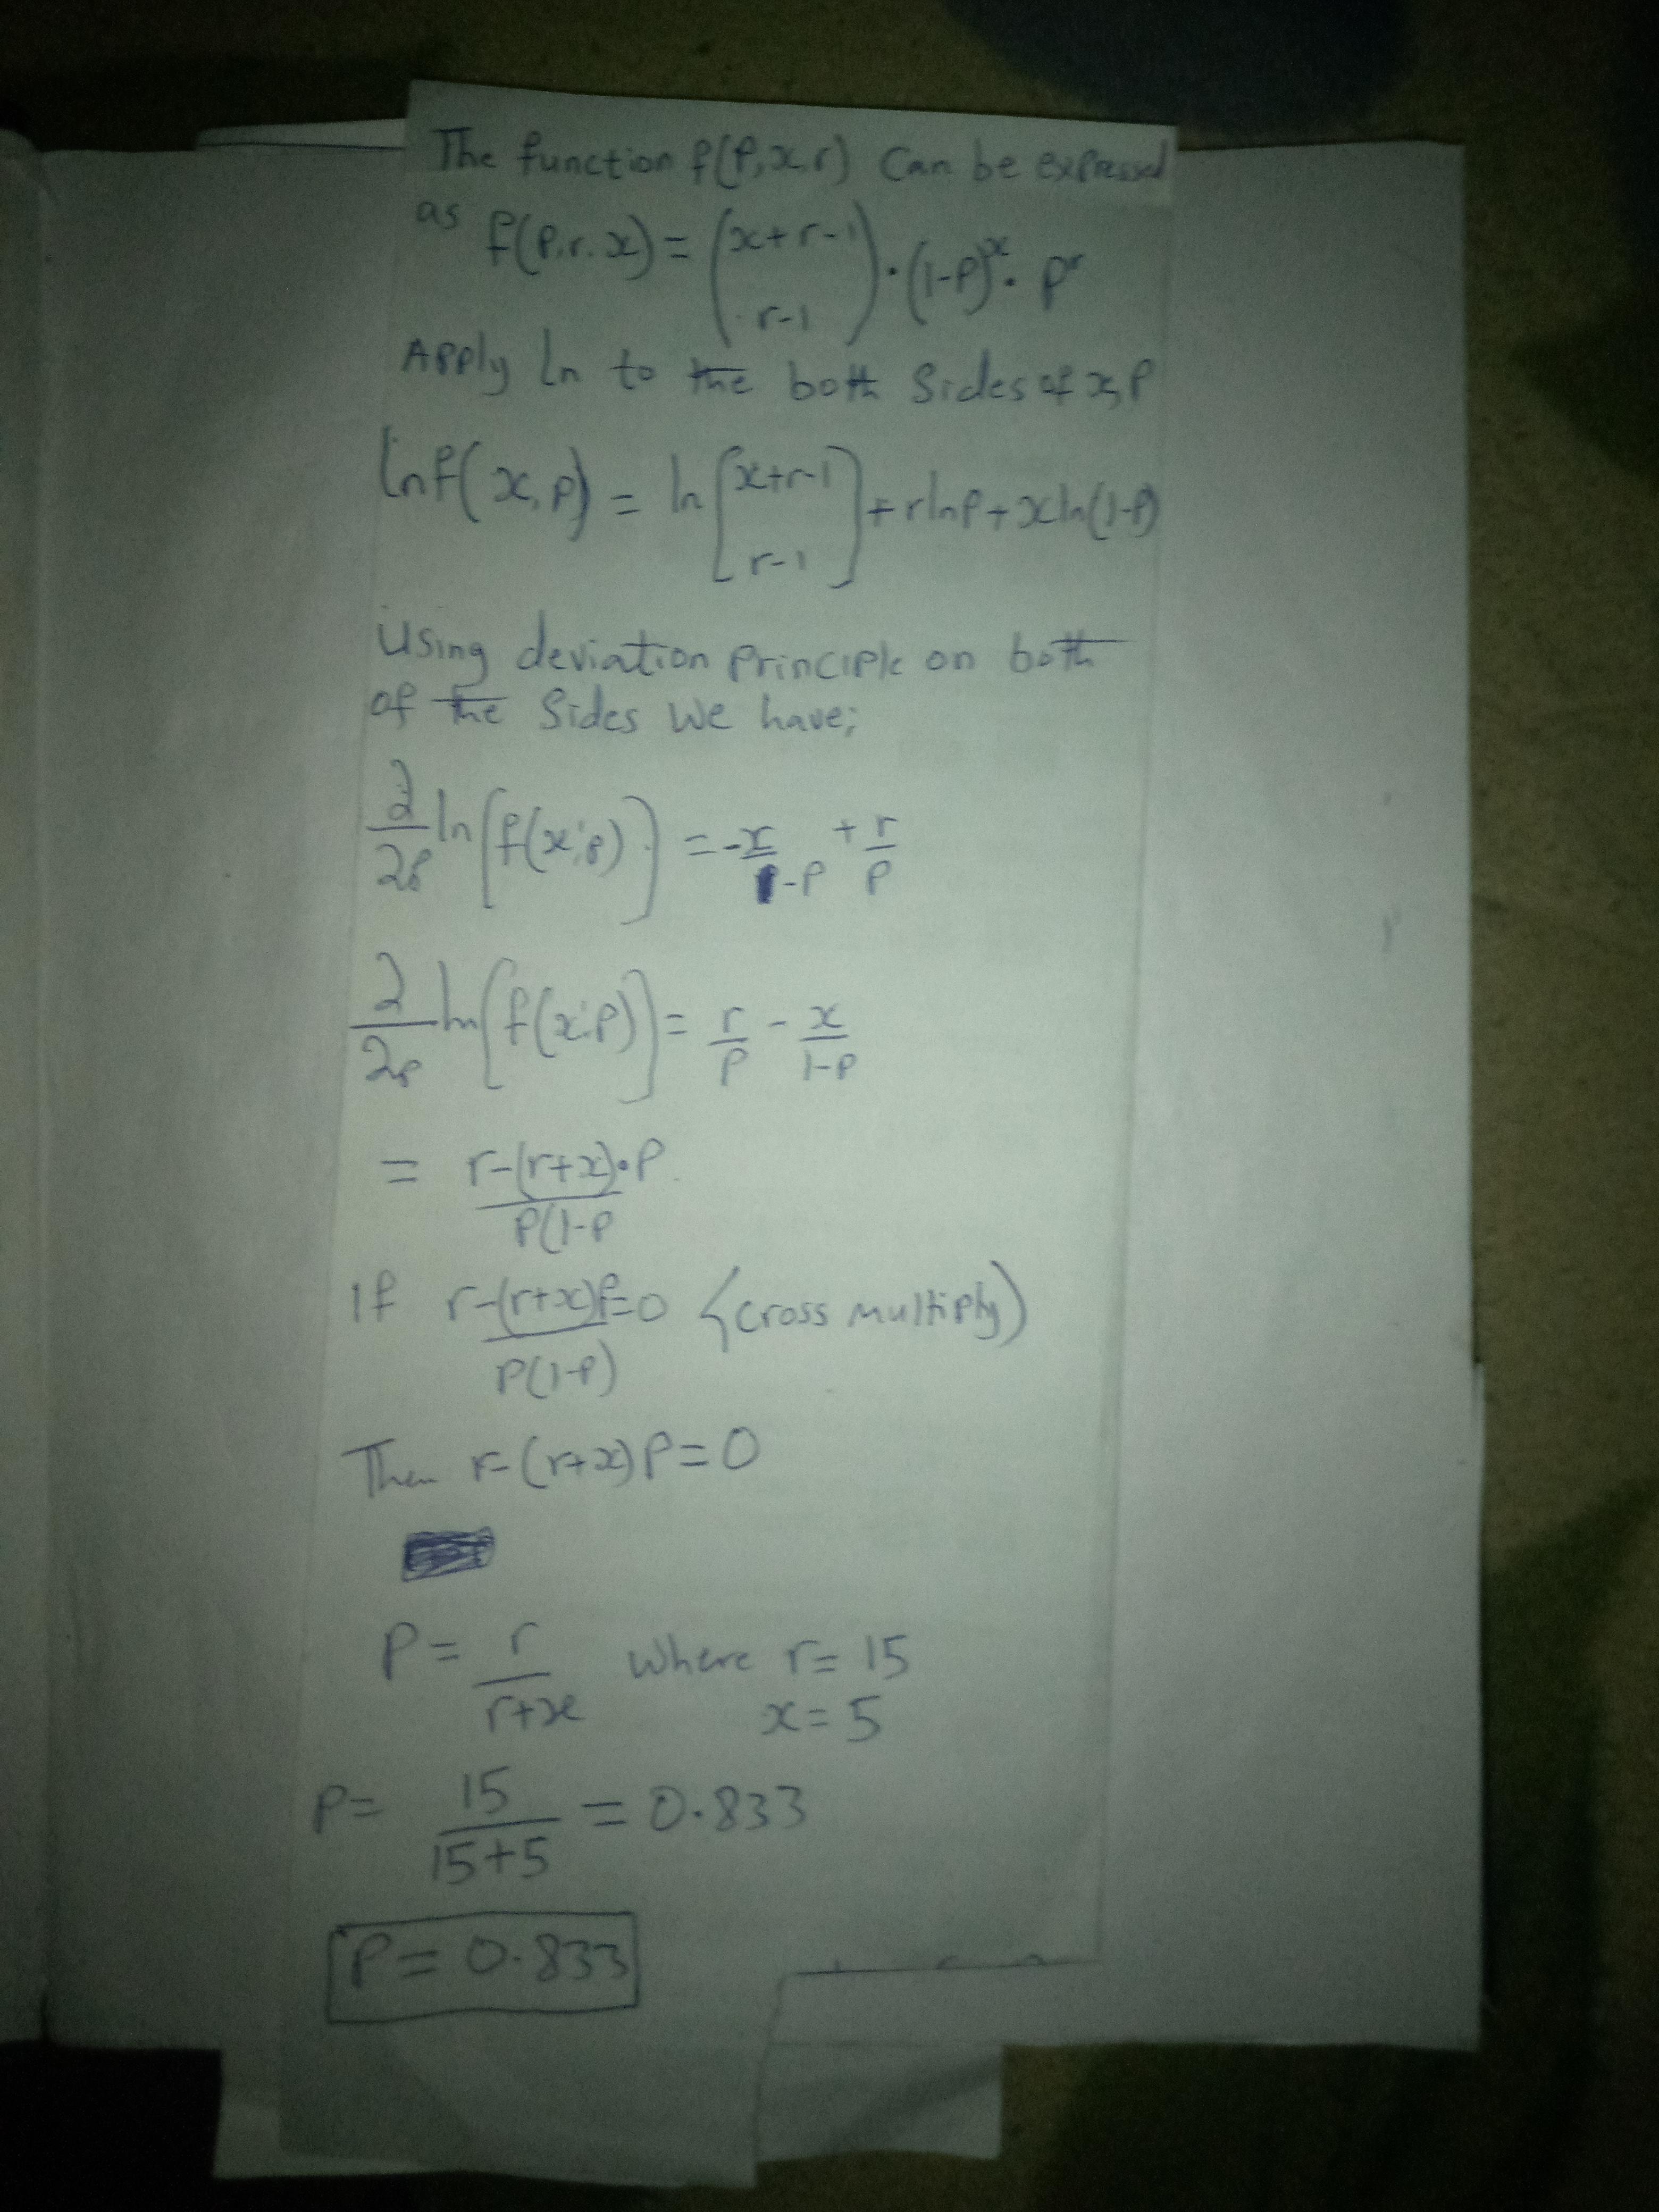 The function f(P,x,r) Can be expressed
as f(P,r,x) = (x+r-1 r-1) · (1-P)^x · P^r
Apply Ln to the both Sides of x,P
lnf(x,P) = ln[x+r-1 r-1] + rlnP + xln(1-P)
Using deviation Principle on both
of the Sides We have;
∂/∂P ln[f(x;P)] = -x/1-P + r/P
∂/∂P ln[f(x;P)] = r/P - x/1-P
= r-(r+x)·P/P(1-P
If r-(r+x)P/P(1-P) = 0 {cross multiply)
Then r-(r+x)P=0
P = r/r+x Where r= 15
x= 5
P= 15/15+5 = 0.833
P= 0.833